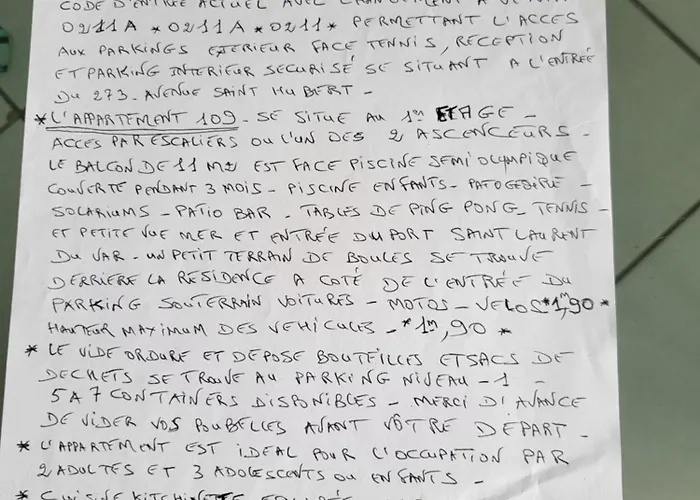 CODE D'ENTRÉE ACTUEL AVEC
0211A * 0211A * 0211 * PERMETTANT L'ACCES
AUX PARKINGS EXTERIEUR FACE TENNIS, RECEPTION
ET PARKING INTERIEUR SECURISÉ SE SITUANT A L'ENTRÉE
DU 273. AVENUE SAINT HUBERT -
* L'APPARTEMENT 109 - SE SITUE AU 1er ETAGE -
ACCES PAR ESCALIERS OU L'UN DES 2 ASCENCEURS -
LE BALCON DE 11 M2 EST FACE PISCINE SEMI OLYMPIQUE
COUVERTE PENDANT 3 MOIS - PISCINE ENFANTS -
SOLARIUMS - PATIO BAR - TABLES DE PING PONG - TENNIS -
ET PETITE VUE MER ET ENTRÉE DU PORT SAINT LAURENT
DU VAR - UN PETIT TERRAIN DE BOULES SE TROUVE
DERRIERE LA RÉSIDENCE A COTÉ DE L'ENTRÉE DU
PARKING SOUTERRAIN VOITURES - MOTOS - VELOS *1m,90 *
HAUTEUR MAXIMUM DES VEHICULES - *1m,90 *
* LE VIDE ORDURE ET DEPOSE BOUTEILLES ET SACS DE
DECHETS SE TROUVE AU PARKING NIVEAU - 1 -
5 A 7 CONTAINERS DISPONIBLES - MERCI D'AVANCE
DE VIDER VOS POUBELLES AVANT VÔTRE DEPART -
* L'APPARTEMENT EST IDEAL POUR L'OCCUPATION PAR
2 ADULTES ET 3 ADOLESCENTS OU ENFANTS -
* CUISINE KITCHINETTE EQUIPÉE